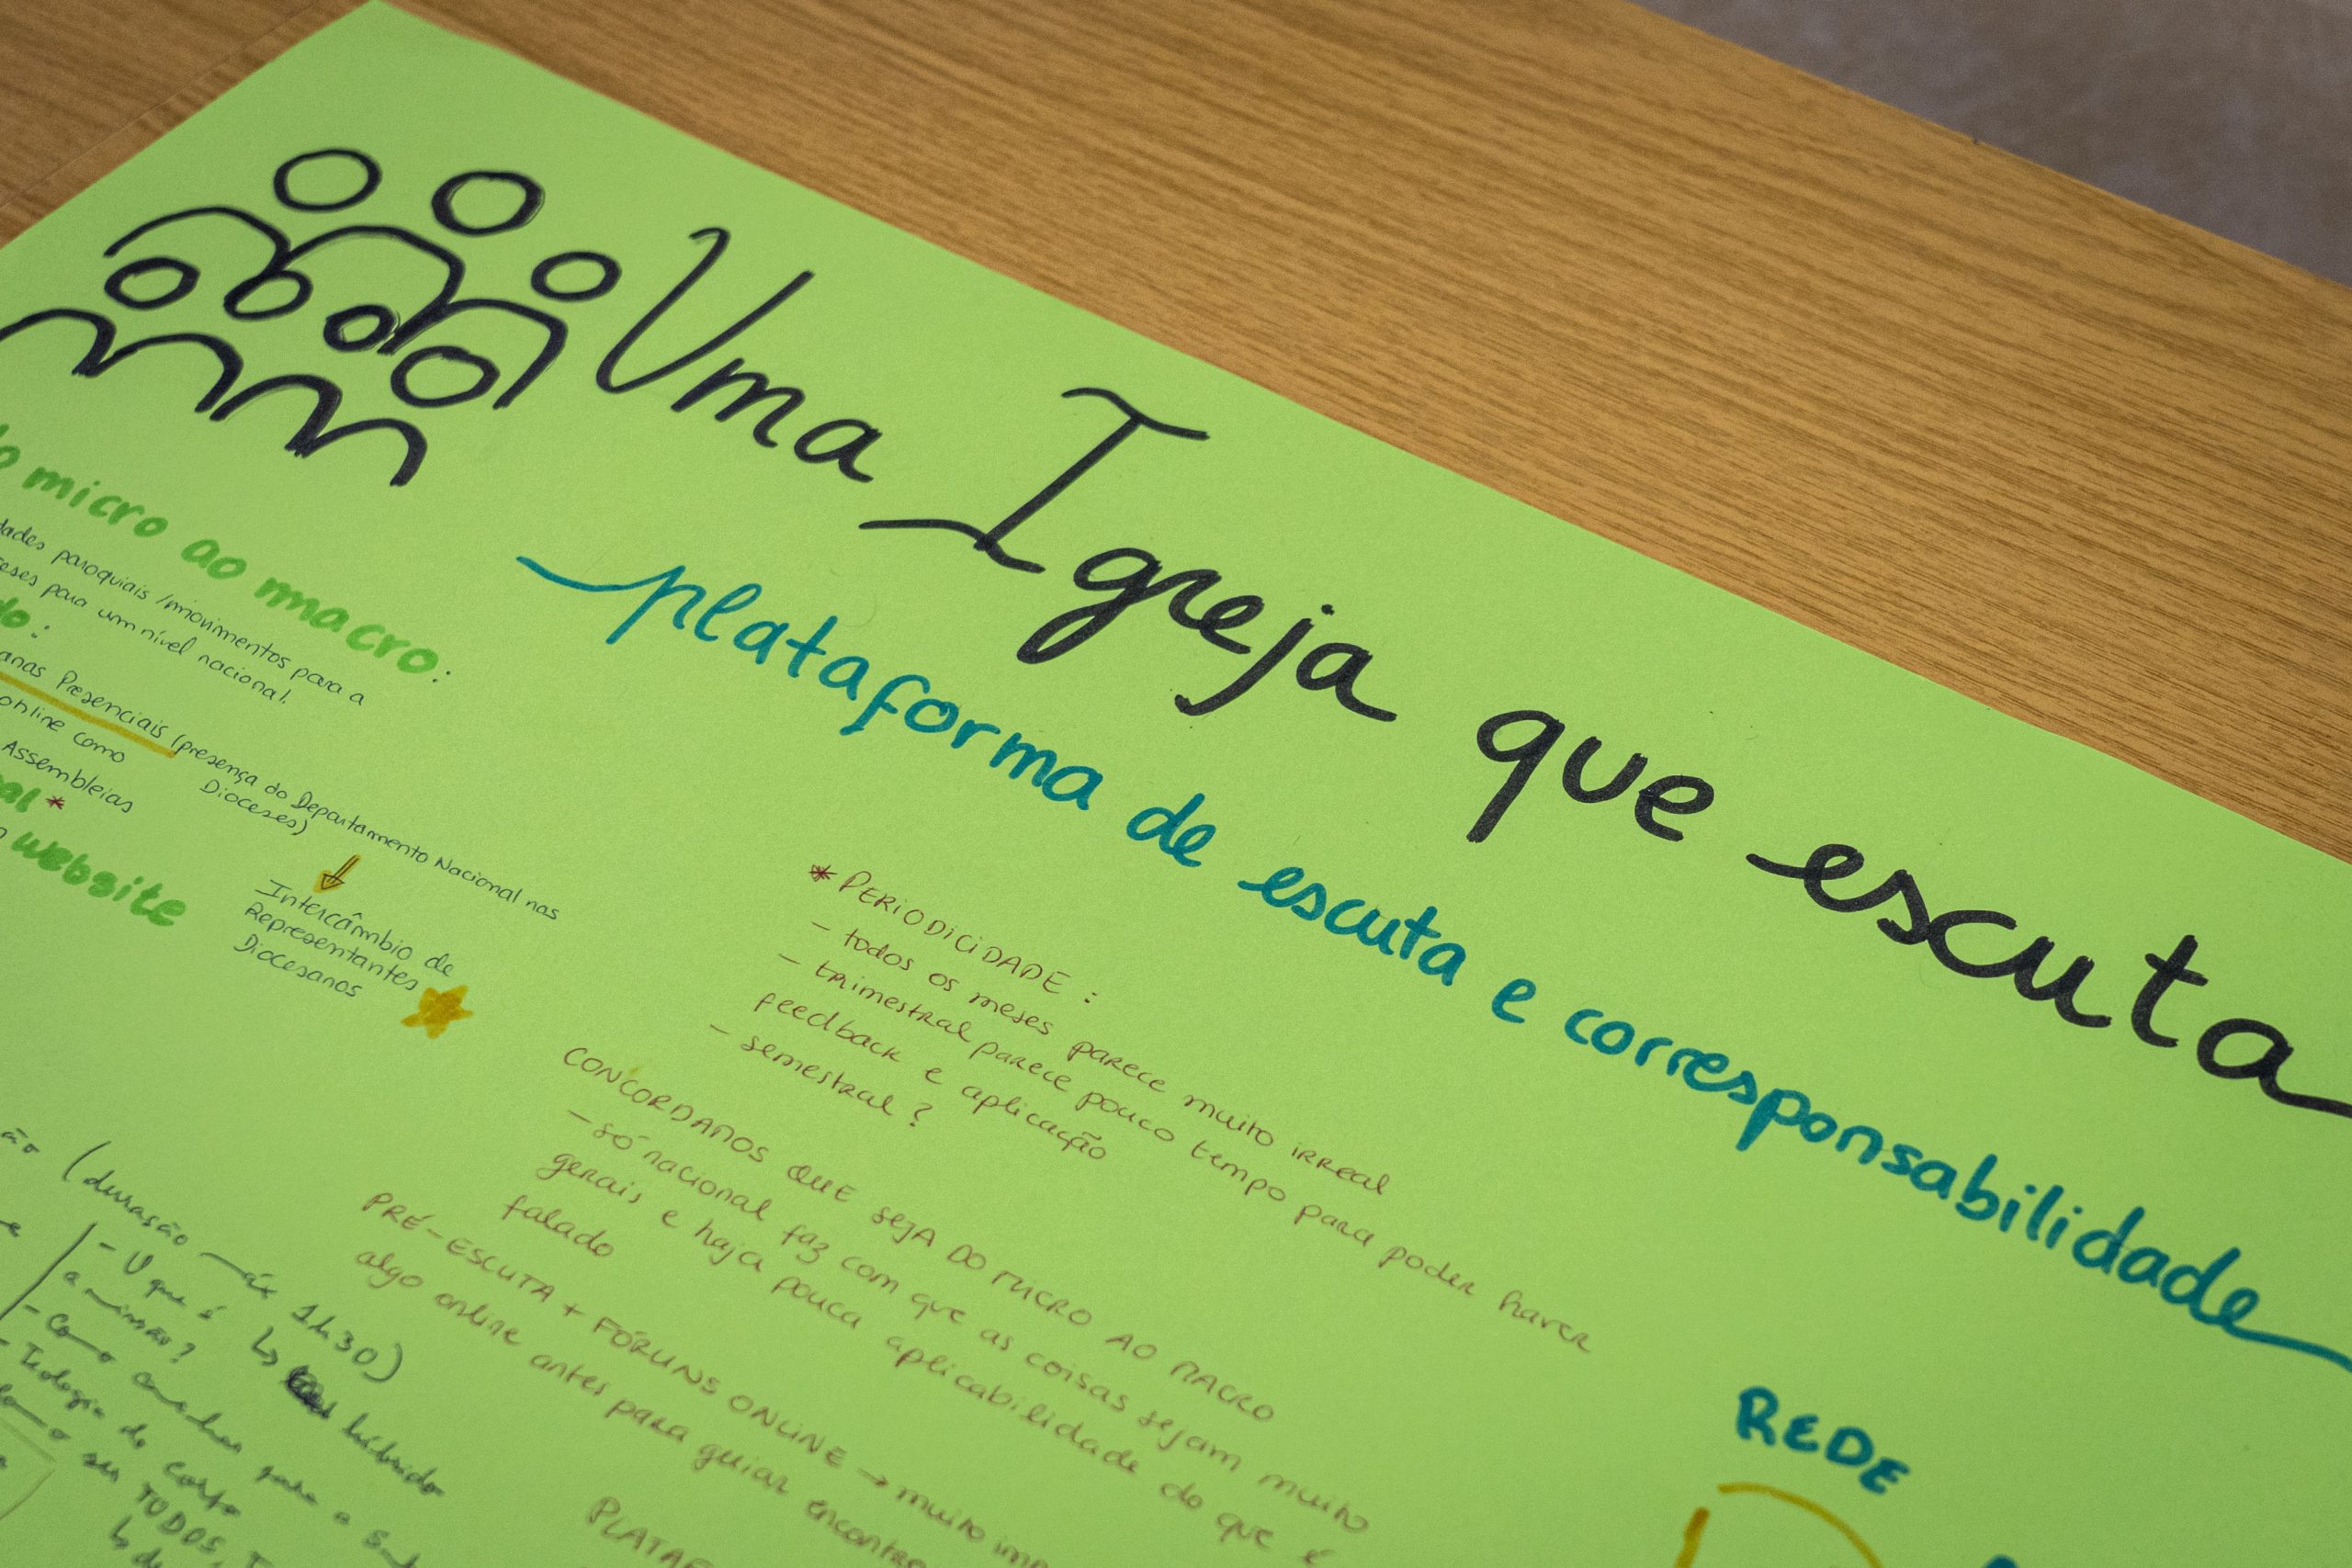 Uma Igreja que escuta
plataforma de escuta e corresponsabilidade
micro ao macro:
paroquiais / movimentos para a
para um nível nacional.
Presenciais (presença do Departamento Nacional nas
Dioceses)
online como
Assembleias
website
Intercâmbio de
Representantes
Diocesanos
* PERIODICIDADE :
- todos os meses parece muito irreal
- trimestral parece pouco tempo para poder haver
feedback e aplicação
- semestral ?
CONCORDAMOS QUE SEJA DO MICRO AO MACRO
- só nacional faz com que as coisas sejam muito
gerais e haja pouca aplicabilidade do que é
falado
PRÉ-ESCUTA + FÓRUNS ONLINE → muito
algo online antes para guiar
REDE
(duração 1h30)
- O que é
a missão?
↳ híbrido
- Teologia do corpo
TODOS,